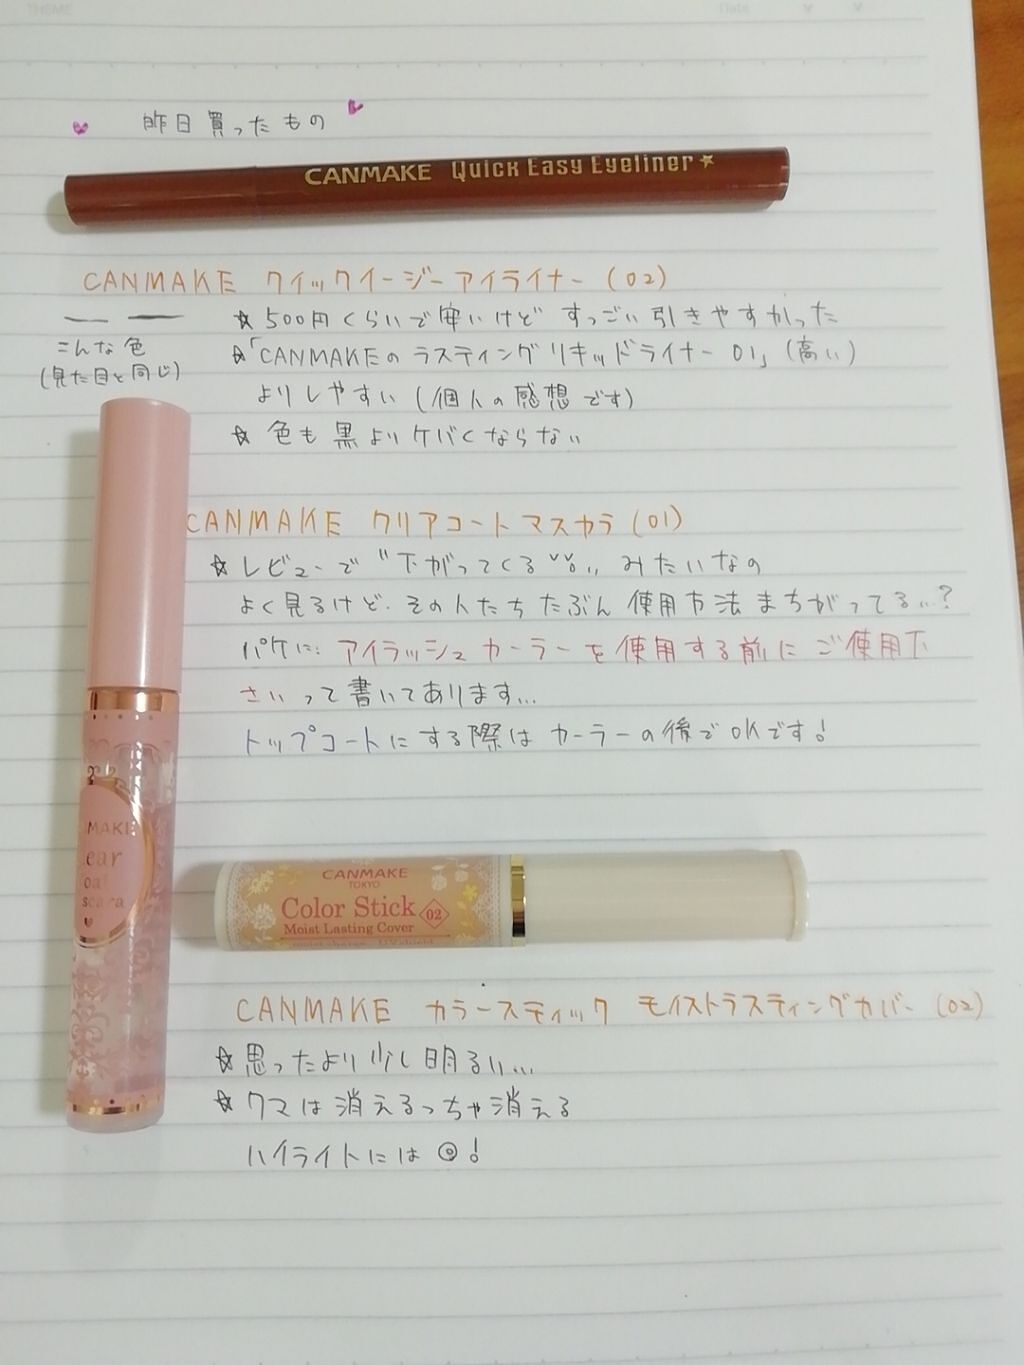 THEME
Date
昨日買ったもの
CANMAKE Quick Easy Eyeliner
CANMAKE クイックイージーアイライナー (02)
こんな色
(見た目と同じ)
☆ 500円くらいで安いけど すっごい引きやすかった
☆「CANMAKEの ラスティングリキッドライナー 01」(高い)
よりしやすい (個人の感想です)
☆ 色も黒よりケバくならない
CANMAKE クリアコートマスカラ (01)
☆ レビューで "下がってくる みたいなの
よく見るけど、その人たちたぶん 使用方法まちがってる…?
パケに: アイラッシュカーラーを使用する前にご使用下
さいって書いてあります…
トップコートにする際はカーラーの後でOKです!
MAKE
ear
oat
scara
CANMAKE
TOKYO
Color Stick
02
Moist Lasting Cover
CANMAKE カラースティック モイストラスティングカバー (02)
☆ 思ったより少し明るい…
☆ クマは消えるっちゃ消える
ハイライトには◎!